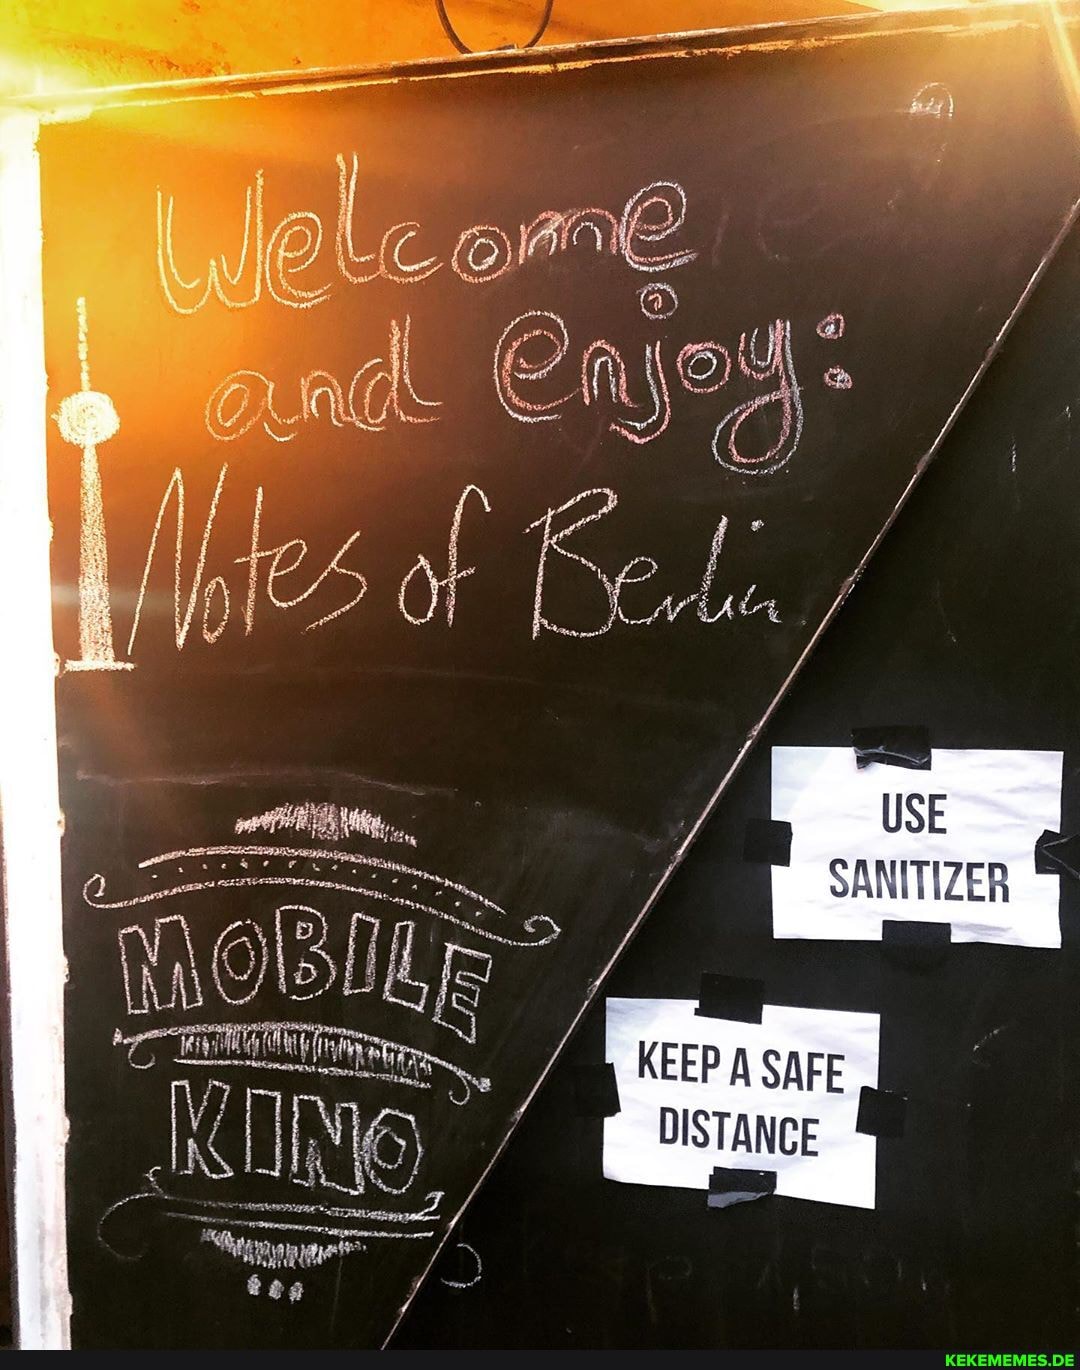 Welcome
and enjoy:
Notes of Berlin
MOBILE
KINO
USE
SANITIZER
KEEP A SAFE
DISTANCE
KEKEMEMES.DE